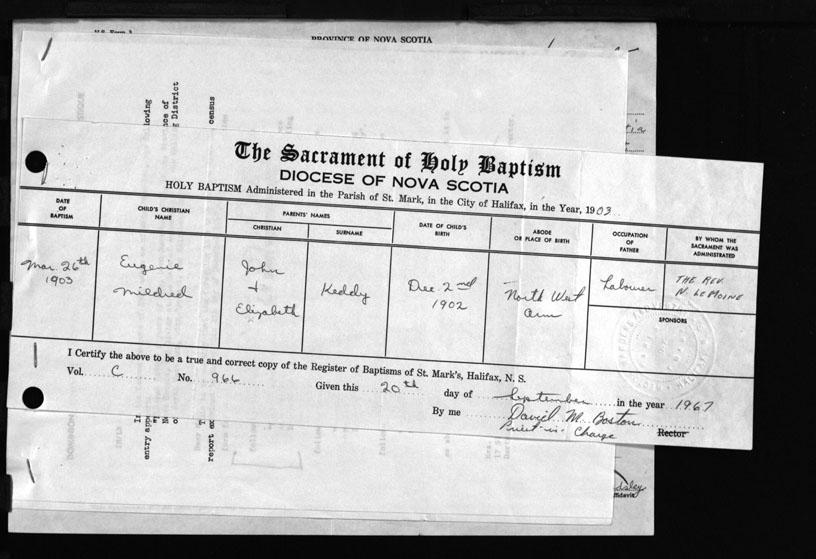 PROVINCE OF NOVA SCOTIA
The Sacrament of Holy Baptism
DIOCESE OF NOVA SCOTIA
HOLY BAPTISM Administered in the Parish of St. Mark, in the City of Halifax, in the Year, 1903
DATE OF BAPTISM
CHILD'S CHRISTIAN NAME
PARENTS' NAMES
CHRISTIAN
SURNAME
DATE OF CHILD'S BIRTH
ABODE OR PLACE OF BIRTH
OCCUPATION OF FATHER
BY WHOM THE SACRAMENT WAS ADMINISTRATED
Mar. 26th 1903
Eugenie Mildred
John + Elizabeth
Keddy
Dec 2nd 1902
North West Arm
Labourer
THE REV. N. LEMOINE
SPONSORS
I Certify the above to be a true and correct copy of the Register of Baptisms of St. Mark's, Halifax, N. S.
Vol. C No. 966 Given this 20th day of September in the year 1967
By me David M. Boston
Priest-in-Charge Rector
census
District
report
entry